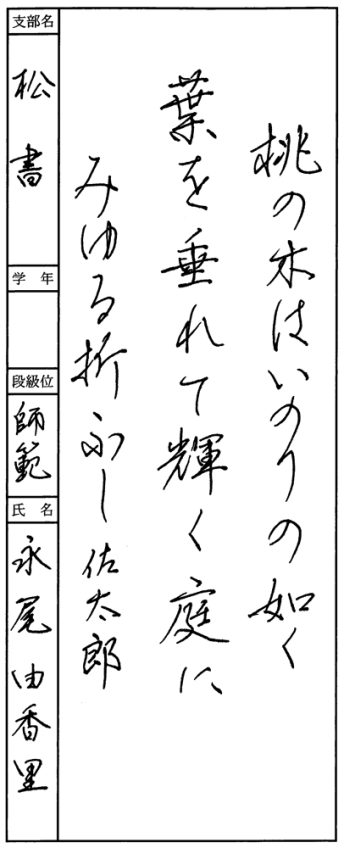 桃の木はいのりの如く
葉を垂れて輝く庭に
みゆる折ふし 佐太郎
支部名
松書
学年
段級位
師範
氏名
永尾由香里